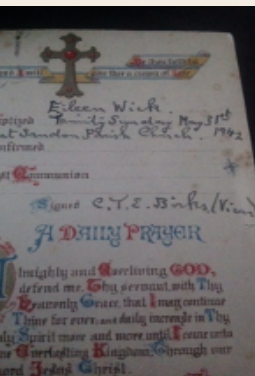 Be thou faithful
and I will give thee a crown of Life
Eileen Wick
Baptized Trinity Sunday May 31st
at Tandon Parish Church. 1942
Confirmed
First Communion
Signed C. T. E. Birks, (Vicar)
A DAILY PRAYER
Almighty and Everliving GOD,
defend me, Thy servant, with Thy
Heavenly Grace, that I may continue
Thine for ever: and daily increase in Thy
Holy Spirit more and more until I come unto
Thy Everlasting Kingdom. Through our
Lord Jesus Christ.